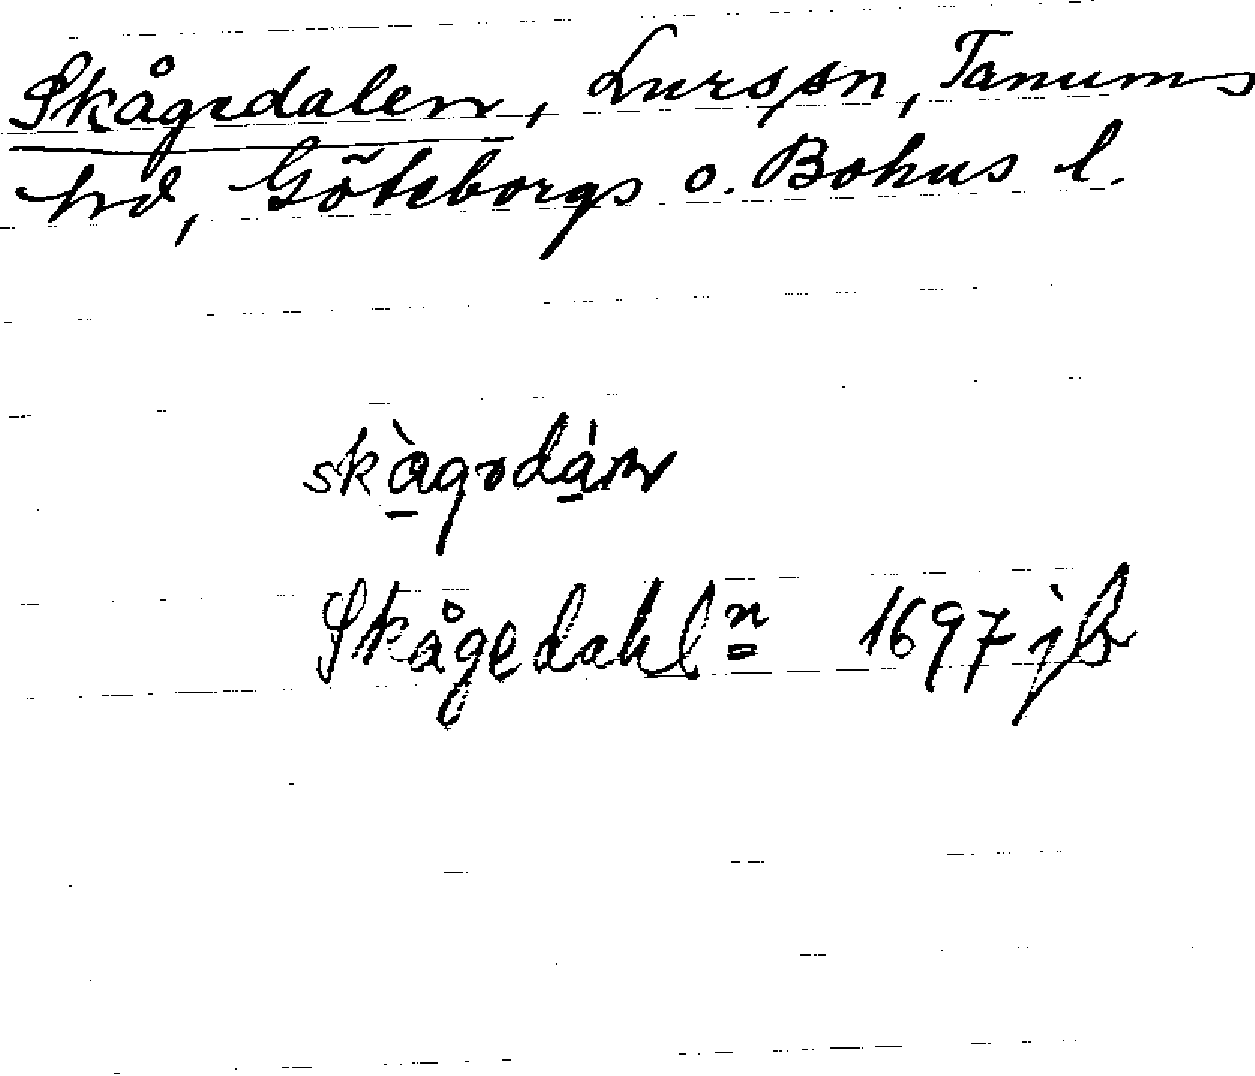 Skågedalen, Lurs sn, Tanums
hd, Göteborgs o. Bohus l.
skàgədán
Skågedahlⁿ 1697 jb